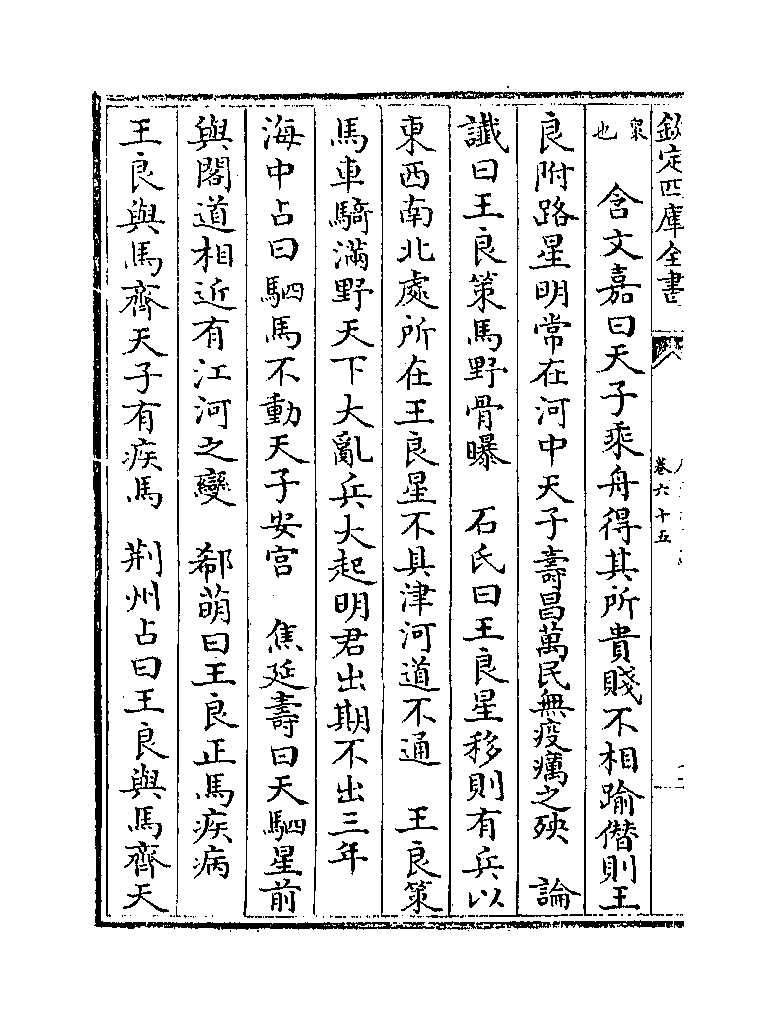 欽定四庫全書
卷六十五
衆也　含文嘉曰天子乘舟得其所貴賤不相踰僭則王
良附路星明常在河中天子壽昌萬民無疫癘之殃　論
讖曰王良策馬野骨曝　石氏曰王良星移則有兵以
東西南北處所在王良星不具津河道不通　王良策
馬車騎滿野天下大亂兵大起明君出期不出三年
海中占曰駟馬不動天子安宫　焦延壽曰天駟星前
與閣道相近有江河之變　郗萌曰王良正馬疾病
王良與馬齊天子有疾馬　荆州占曰王良與馬齊天